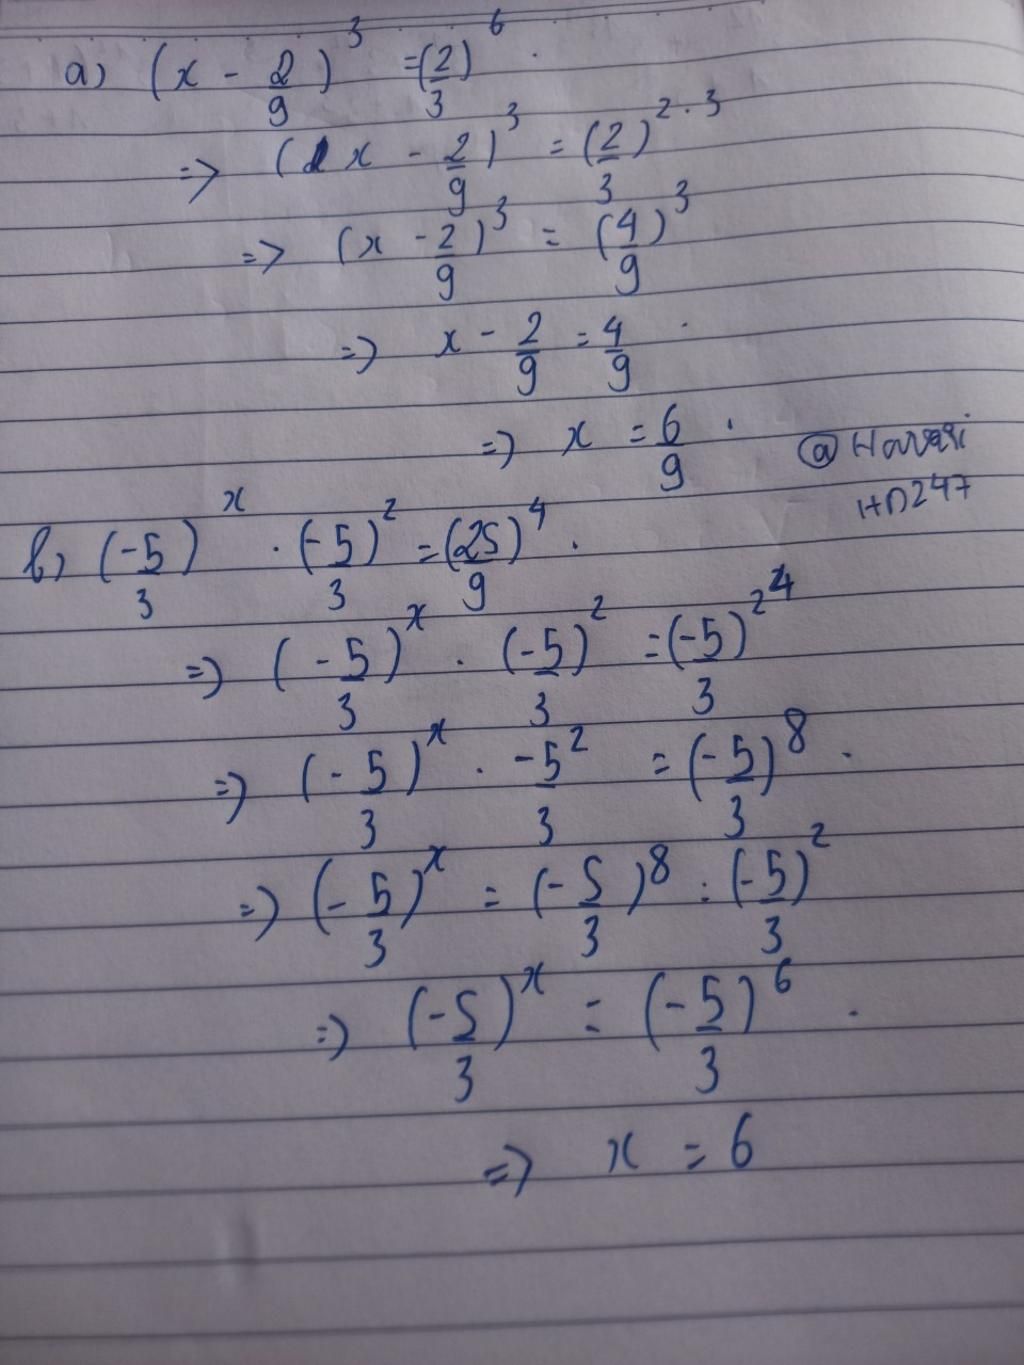 a) (x - 2/9)^3 = (2/3)^6 .
=> (x - 2/9)^3 = (2/3)^2.3
=> (x - 2/9)^3 = (4/9)^3
=> x - 2/9 = 4/9 .
=> x = 6/9 .
HD247
b) (-5/3)^x . (-5/3)^2 = (25/9)^4 .
=> (-5/3)^x . (-5/3)^2 = (-5/3)^2^4
=> (-5/3)^x . -5^2/3 = (-5/3)^8 .
=> (-5/3)^x = (-5/3)^8 : (-5/3)^2
=> (-5/3)^x = (-5/3)^6 .
=> x = 6